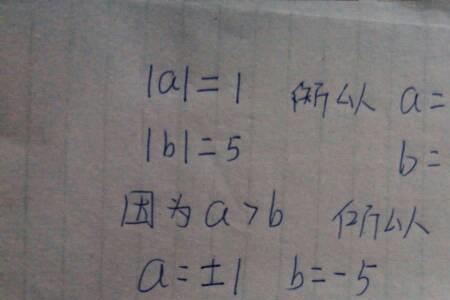 |a|=1 所以 a=
|b|=5 b=
因为a>b 所以
a=±1 b=-5